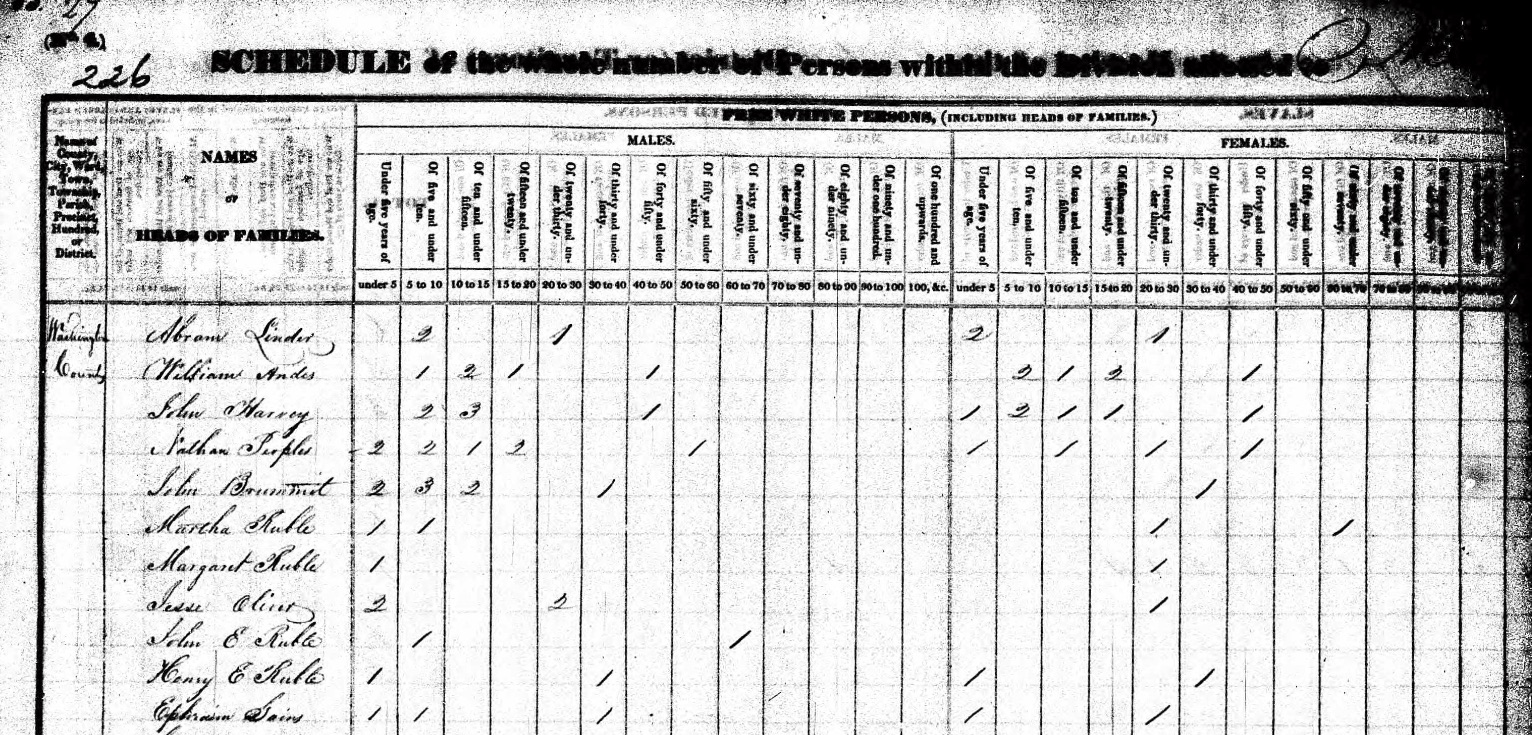 27
(No. 4.)
226 SCHEDULE of the whole number of Persons within the Division allotted to
FREE WHITE PERSONS, (INCLUDING HEADS OF FAMILIES.)
MALES. FEMALES.
Names of County, City, Ward, Town, Township, Parish, Precinct, Hundred, or District.
NAMES
OF
HEADS OF FAMILIES.
Under five years of age. Of five and under ten. Of ten and under fifteen. Of fifteen and under twenty. Of twenty and under thirty. Of thirty and under forty. Of forty and under fifty. Of fifty and under sixty. Of sixty and under seventy. Of seventy and under eighty. Of eighty and under ninety. Of ninety and under one hundred. Of one hundred and upwards. Under five years of age. Of five and under ten. Of ten and under fifteen. Of fifteen and under twenty. Of twenty and under thirty. Of thirty and under forty. Of forty and under fifty. Of fifty and under sixty. Of sixty and under seventy.
under 5 5 to 10 10 to 15 15 to 20 20 to 30 30 to 40 40 to 50 50 to 60 60 to 70 70 to 80 80 to 90 90 to 100 100, &c. under 5 5 to 10 10 to 15 15 to 20 20 to 30 30 to 40 40 to 50 50 to 60 60 to 70 70 to 80
Washington Abram Linder 2 1 2 1
County William Andes 1 2 1 1 2 1 2 1
John Harvey 2 3 1 1 2 1 1 1
Nathan Peoples 2 2 1 2 1 1 1 1 1
John Brummit 2 3 2 1 1
Martha Ruble 1 1 1 1
Margaret Ruble 1 1
Jesse Oliver 2 2 1
John E Ruble 1 1
Henry E Ruble 1 1 1 1
Ephraim Gains 1 1 1 1 1